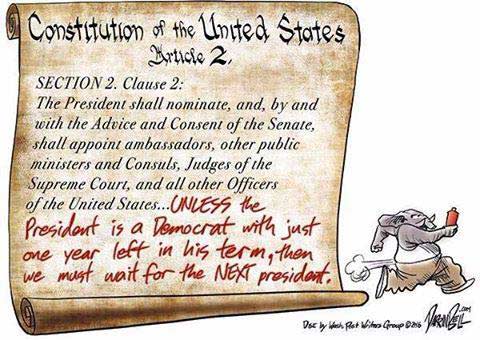 Constitution of the United States
Article 2.
SECTION 2. Clause 2:
The President shall nominate, and, by and
with the Advice and Consent of the Senate,
shall appoint ambassadors, other public
ministers and Consuls, Judges of the
Supreme Court, and all other Officers
of the United States...UNLESS the
President is a Democrat with just
one year left in his term, then
we must wait for the NEXT president.
Dist by Wash. Post Writers Group © 2016